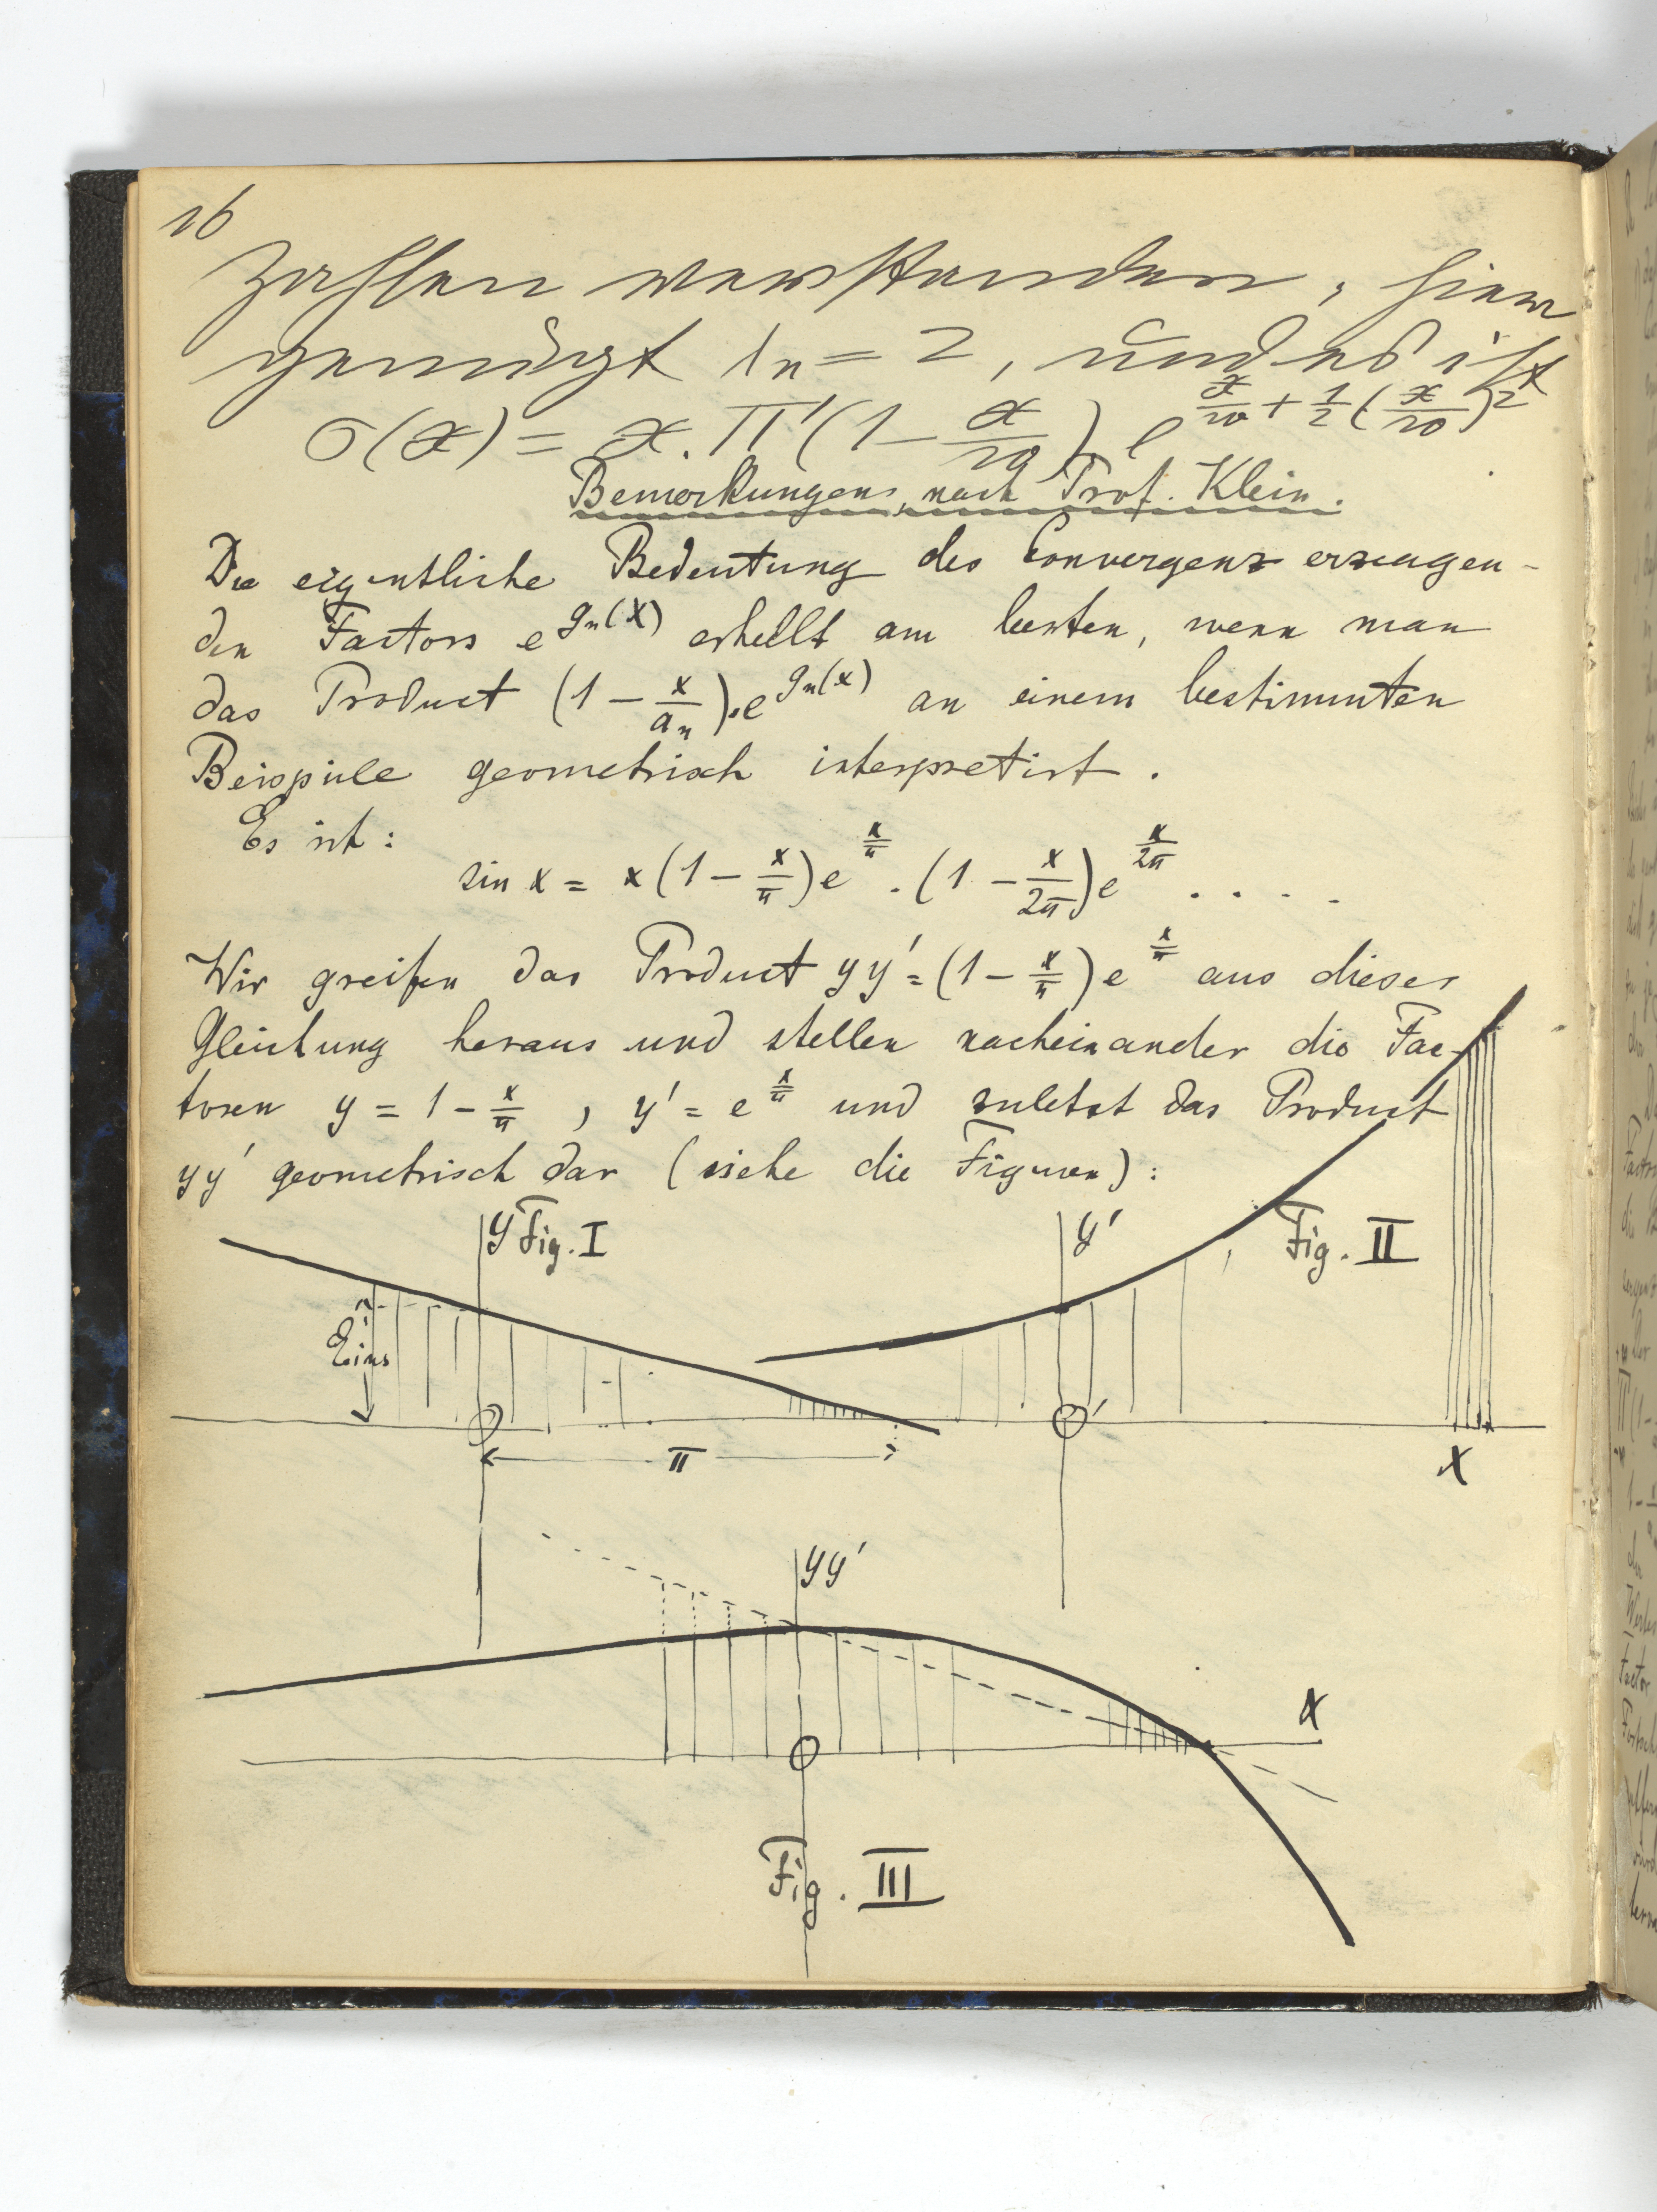 16
Zahlen verstanden, hier
genügt ln = 2, und es ist
σ(x) = x. Π'(1 - x/w) e^{x/w + 1/2 (x/w)^2}
Bemerkungen, nach Prof. Klein.
Die eigentliche Bedeutung des Convergenz erzeugen-
den Factors e^{gn(x)} erhellt am besten, wenn man
das Product (1 - x/a_n).e^{gn(x)} an einem bestimmten
Beispiele geometrisch interpretirt.
Es ist:
sin x = x(1 - x/π)e^{x/π} . (1 - x/2π)e^{x/2π} . . . .
Wir greifen das Product yy' = (1 - x/π)e^{x/π} aus dieser
Gleichung heraus und stellen nacheinander die Fac-
toren y = 1 - x/π , y' = e^{x/π} und zuletzt das Product
yy' geometrisch dar (siehe die Figuren):
y Fig. I
y' Fig. II
Eins
O
O'
π
X
yy'
X
O
Fig. III